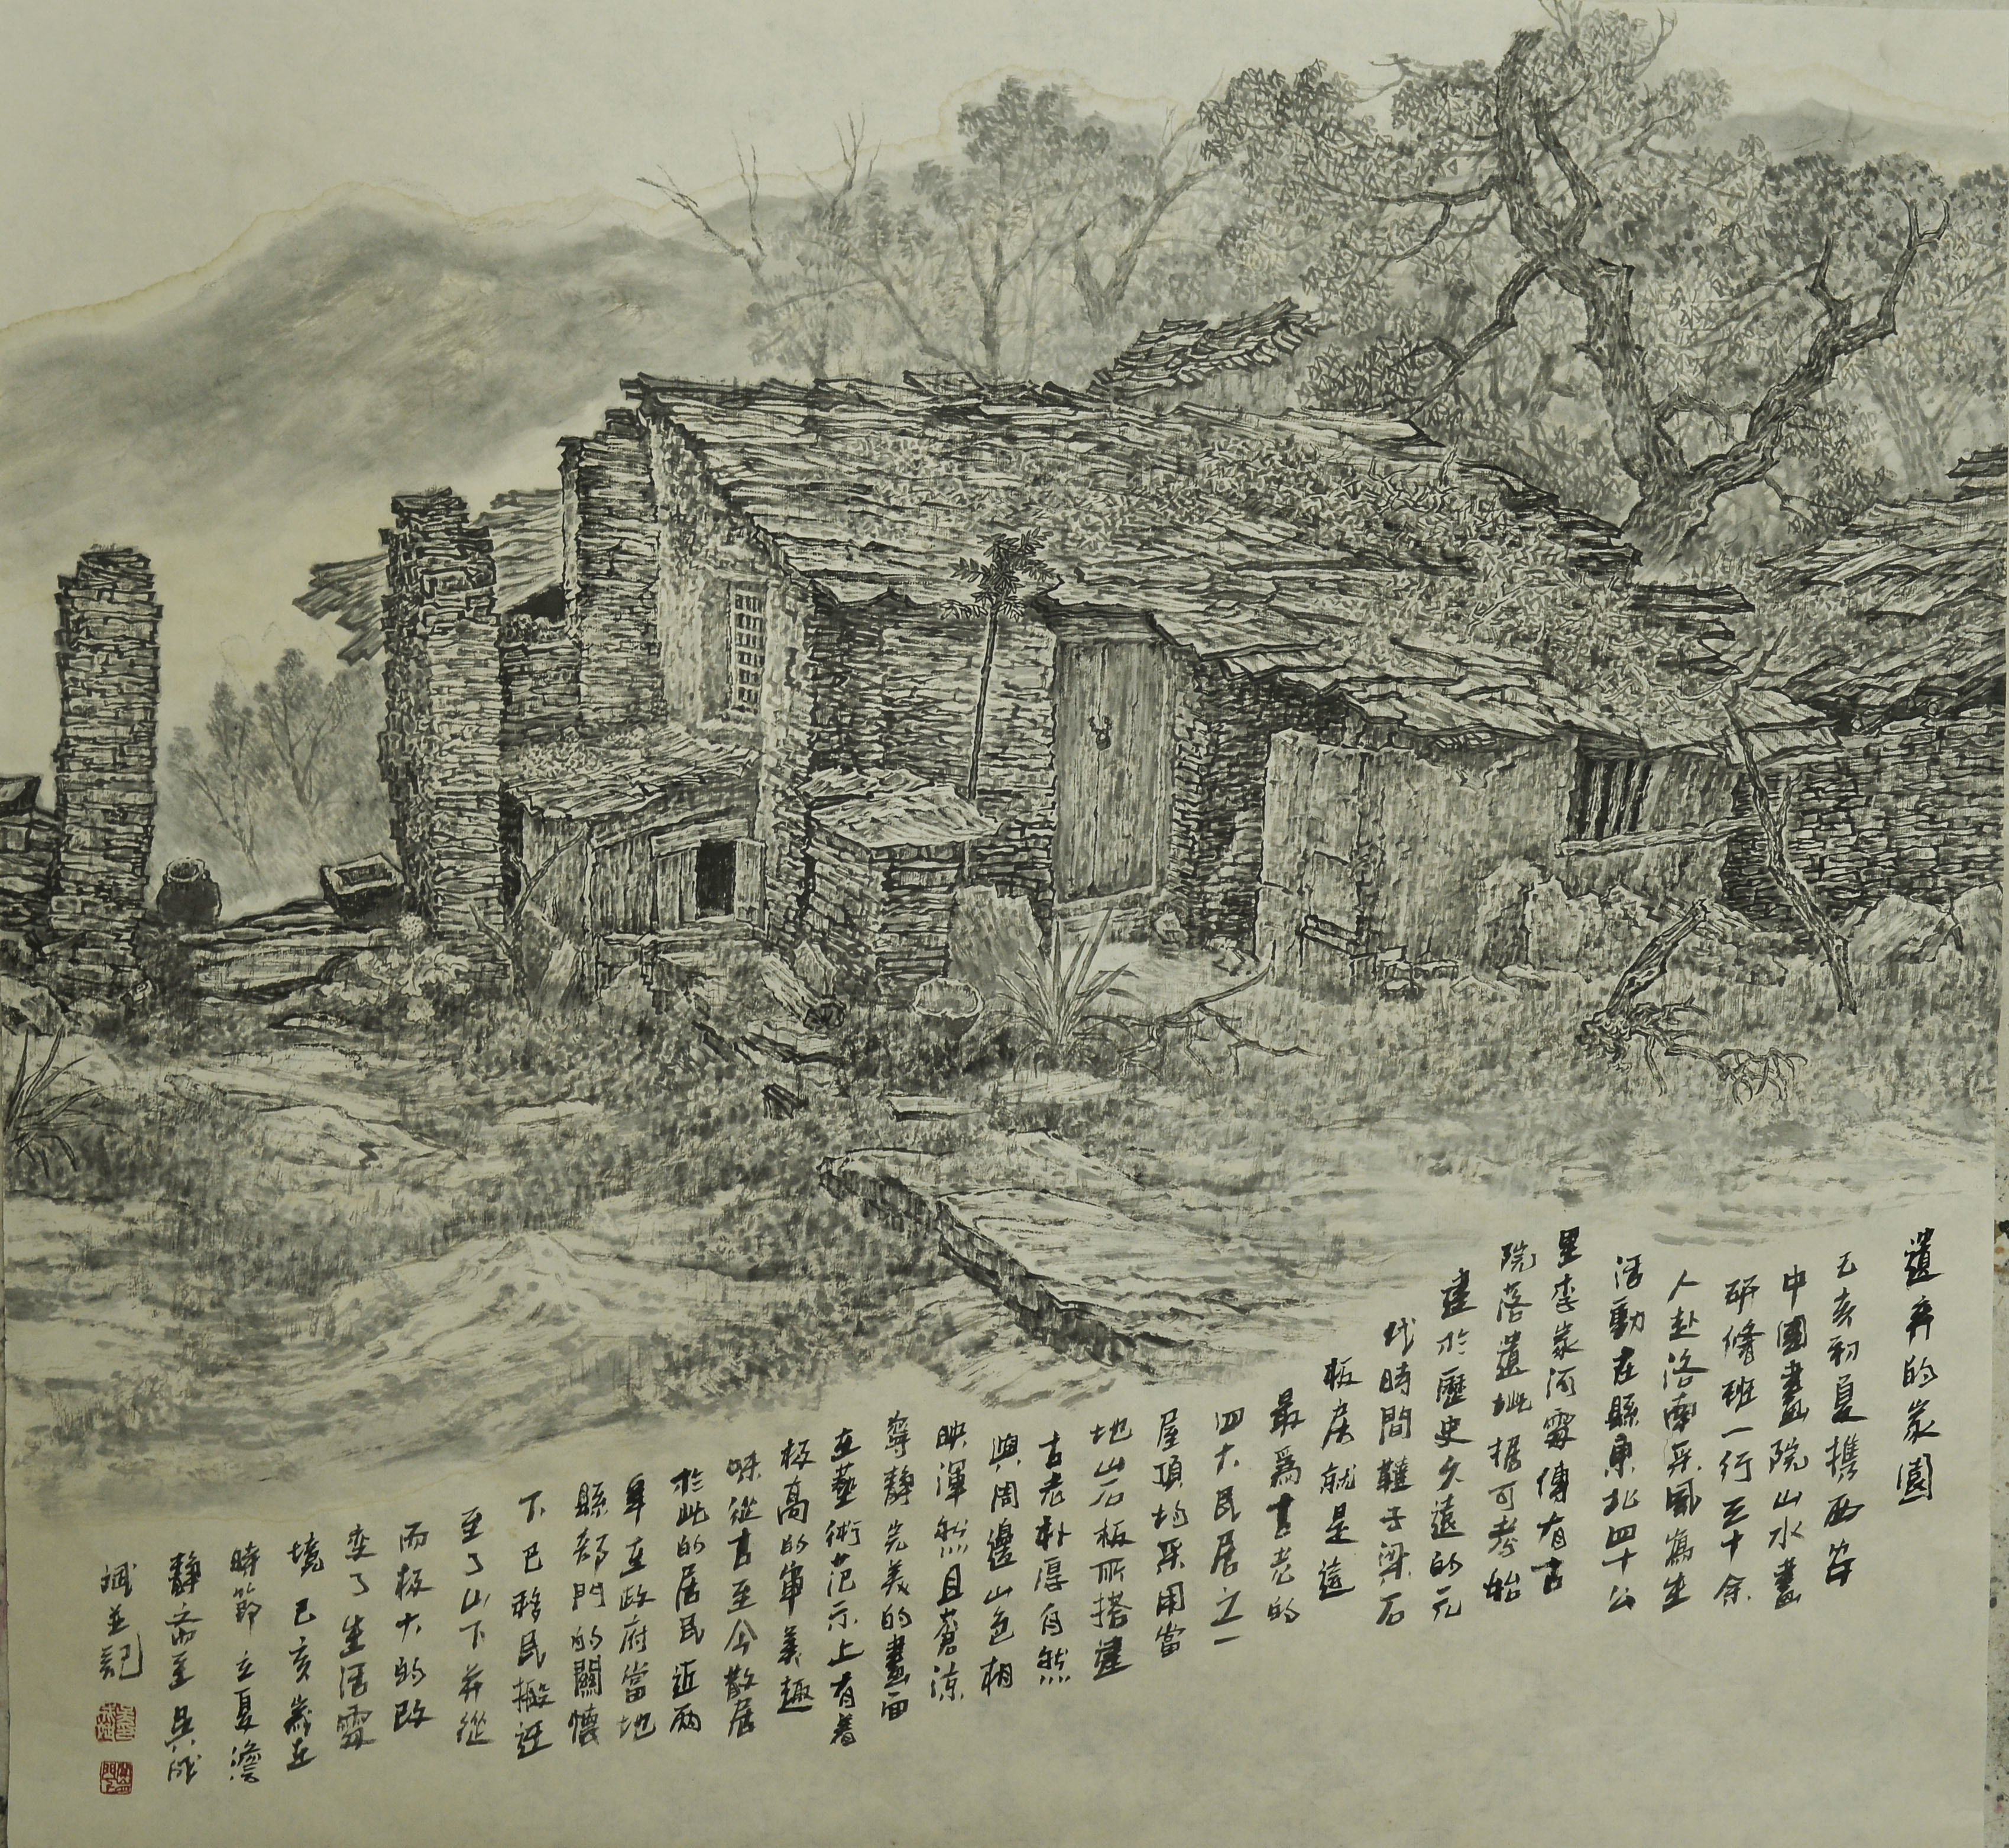 遺弃的家園
己亥初夏携西安
中國畫院山水畫
研修班一行三十余
人赴洛南采風寫生
活動在縣東北四十公
里李家河
院落遺址據可考始
建於歷史久遠的元
代時間
板房就是這
最爲古老的
四大民居之一
屋頂均采用當
地山石板所搭建
古老朴厚自然
與周邊山色相
映渾然且蒼涼
寧靜完美的畫面
在藝術范示上有着
极高的審美趣
味從古至今散居
於此的居民近兩
年在政府當地
縣部門的關懷
下已移民搬迁
至了山下并從
而极大的改
变了生活環
境己亥歲在
時節立夏澹
靜齋至
斌並記